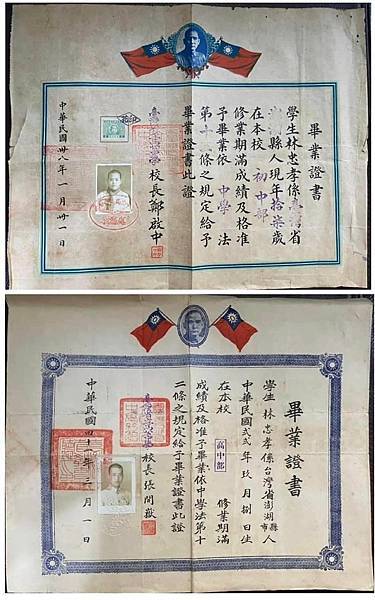 畢業證書
學生林忠孝係臺灣省
縣人現年拾柒歲
在本校初中部
修業期滿成績及格准
予畢業依中學法
第十條之規定給予
畢業證書此證
校長鄭啟中
中華民國卅八年一月卅一日
畢業證書
學生林忠孝係台灣省澎湖縣市人
中華民國弍弍年玖月捌日生
在本校高中部修業期滿
成績及格准予畢業依中學法第十
二條之規定給予畢業證書此證
校長張閒嶽
中華民國四十年三月一日